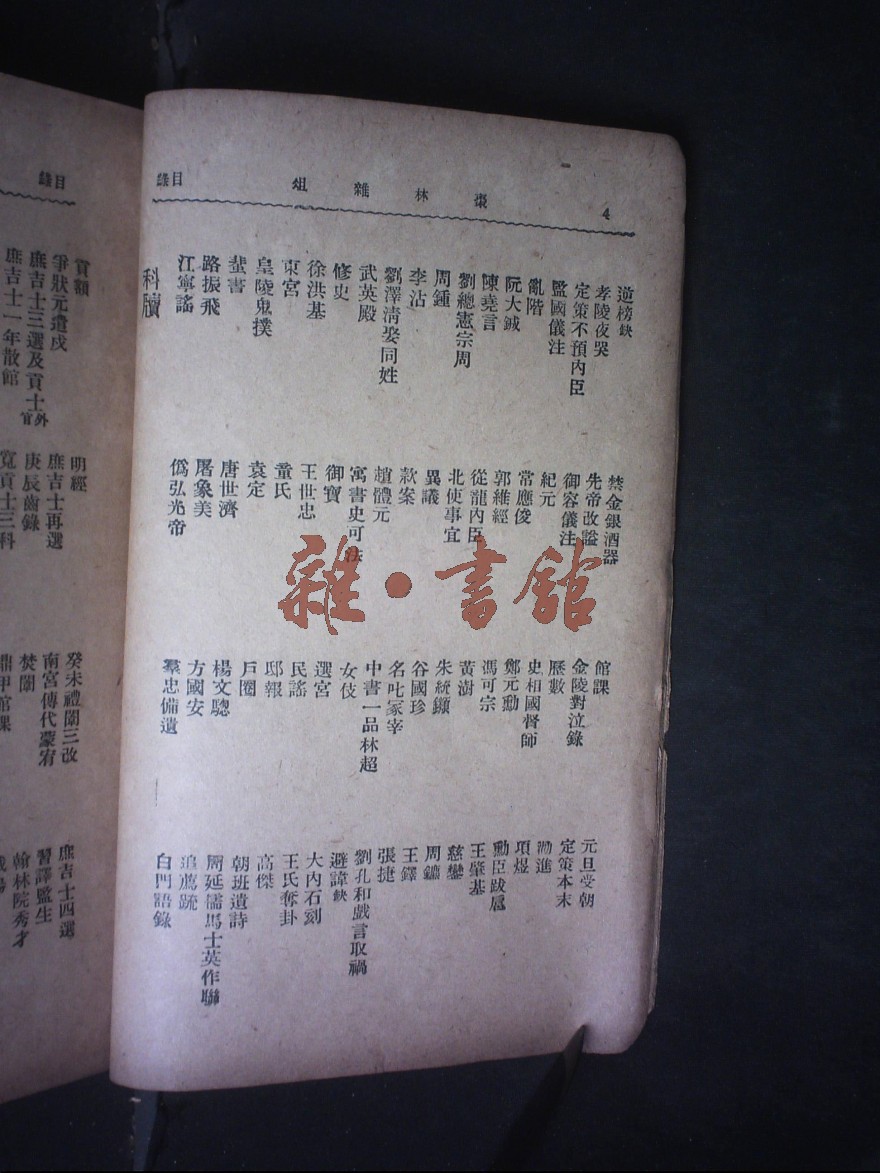 4
棗林雜俎
目錄
逆榜缺
孝陵夜哭
定策不預內臣
監國儀注
亂階
阮大鋮
陳堯言
劉總憲宗周
周鍾
李沾
劉澤淸娶同姓
武英殿
修史
徐洪基
東宮
皇陵鬼撲
蜚書
路振飛
江寧謠
科牘
禁金銀酒器
先帝改謚
御容儀注
紀元
常應俊
郭維經
從龍內臣
北使事宜
異議
款案
趙體元
寓書史可法
御寶
王世忠
童氏
袁定
唐世濟
屠象美
僞弘光帝
館課
金陵對泣錄
歷數
史相國督師
鄭元勳
馮可宗
黃澍
朱統𨰥
谷國珍
名叱冢宰
中書一品林超
女伎
選宮
民謠
邸報
戶圈
楊文驄
方國安
羣忠備遺
元旦受朝
定策本末
勸進
項煜
勳臣跋扈
王肇基
慈鑾
周鑣
王鐸
張捷
劉孔和戲言取禍
避諱缺
大內石刻
王氏奪卦
高傑
朝班遺詩
阮延儒馬士英作聯
追薦疏
白門語錄
雜·書館
目錄
貢額
爭狀元遣戍
庶吉士三選及貢士外官
庶吉士一年散館
明經
庶吉士再選
庚辰齒錄
寬貢士三科
癸未禮闈三改
南宮傳代蒙宥
焚闈
鼎甲館課
庶吉士四選
習譯監生
翰林院秀才